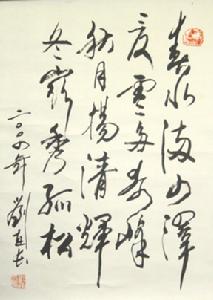 春水满四澤
夏雲多奇峰
秋月揚清輝
冬嶺秀孤松
二〇〇四年 劉